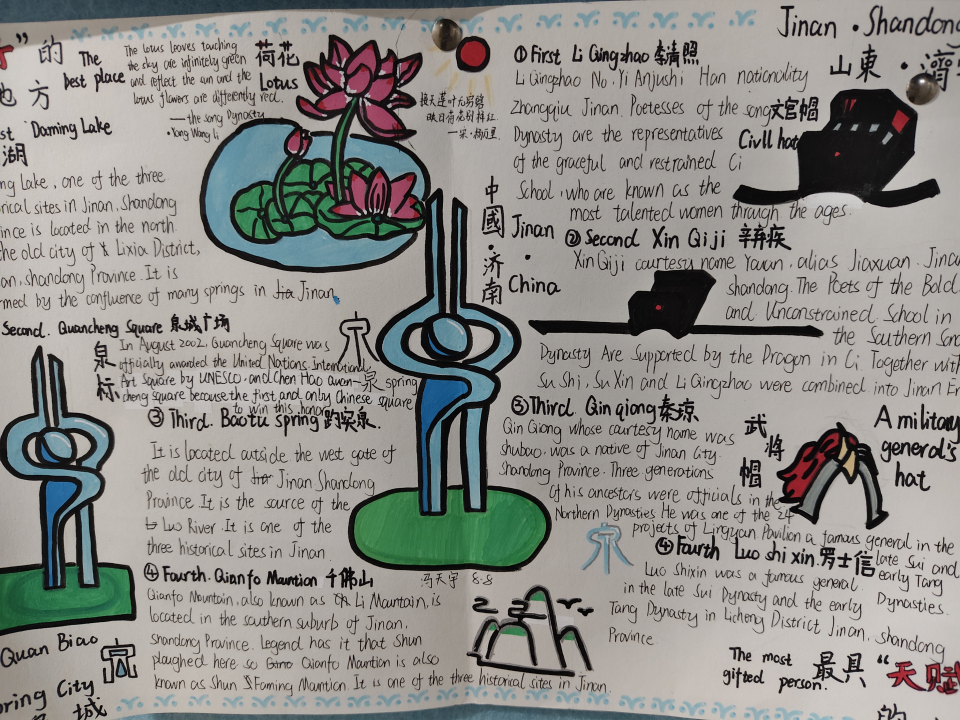 ” 的
The
best place
地 方
The lotus leaves touching
the sky are infinitely green
and reflect the sun and the
lotus flowers are differently red.
——the song Dynasty
·Yang Wang Li
荷花
Lotus
接天莲叶无穷碧
映日荷花别样红
一宋·杨万里
Daming Lake
湖
ng Lake, one of the three
rical sites in Jinan, Shandong
ince is located in the north
the old city of Lixia District,
an, shandong Province. It is
rmed by the confluence of many springs in Jinan.
Second. Quancheng Square 泉城广场
泉
标
In August 2002, Guancheng Square was
officially awarded the United Nations International
Art Square by UNESCO, and Chen Hao
cheng square because the first and only Chinese square
to win this honor
泉 spring
③ Third. Baotu spring 趵突泉.
It is located outside the west gate of
the old city of Jinan Shandong
Province. It is the source of the
Luo River. It is one of the
three historical sites in Jinan
④ Fourth. Qianfo Mauntion 千佛山
Qianfo Mauntain, also known as Li Mauntain, is
located in the southern suburb of Jinan,
Shandong Province. Legend has it that Shun
ploughed here so Qianfo Mauntion is also
known as Shun Faming Mauntion. It is one of the three historical sites in Jinan.
Quan Biao
ring City
城
中國·济南
Jinan
·
China
冯天宇 8.8
Jinan · Shandong
山東 · 濟
① First Li Qingzhao 李清照
Li Qingzhao No. Yi Anjushi Han nationality
Zhangqiu Jinan. Poetesses of the song
Dynasty are the representatives
of the graceful and restrained Ci
School, who are known as the
most talented women through the ages.
文官帽
Civil hat
② Second Xin Qiji 辛弃疾
Xin Qiji courtesy name Youan, alias Jiaxuan, Jinan
shandong. The Poets of the Bold
and Unconstrained School in
the Southern Song
Dynasty Are Supported by the Dragon in Ci Together with
Su Shi, Su Xin and Li Qingzhao were combined into Jinan Er
③ Third. Qin qiong 秦琼
Qin Qiong whose courtesy name was
shubao, was a native of Jinan City.
Shandong Province. Three generations
of his ancestors were officials in the
Northern Dynasties He was one of the 24
projects of Lingyan Pavilion a famous general in the
late Sui and
early Tang
Dynasties.
武
将
帽
A military
general's
hat
④ Fourth Luo shi xin 罗士信
Luo Shixin was a famous general
in the late Sui Dynasty and the early
Tang Dynasty in Licheng District Jinan, shandong
Province
The most
gifted person.
最具 “天赋
的